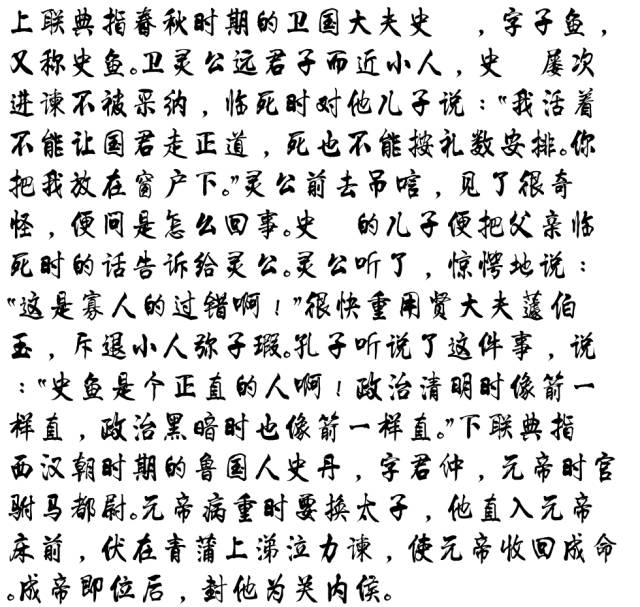 上联典指春秋时期的卫国大夫史　，字子鱼，
又称史鱼。卫灵公远君子而近小人，史　屡次
进谏不被采纳，临死时对他儿子说：“我活着
不能让国君走正道，死也不能按礼数安排。你
把我放在窗户下。”灵公前去吊唁，见了很奇
怪，便问是怎么回事。史　的儿子便把父亲临
死时的话告诉给灵公。灵公听了，惊愕地说：
“这是寡人的过错啊！”很快重用贤大夫蘧伯
玉，斥退小人弥子瑕。孔子听说了这件事，说
：“史鱼是个正直的人啊！政治清明时像箭一
样直，政治黑暗时也像箭一样直。”下联典指
西汉朝时期的鲁国人史丹，字君仲，元帝时官
驸马都尉。元帝病重时要换太子，他直入元帝
床前，伏在青蒲上涕泣力谏，使元帝收回成命
。成帝即位后，封他为关内侯。